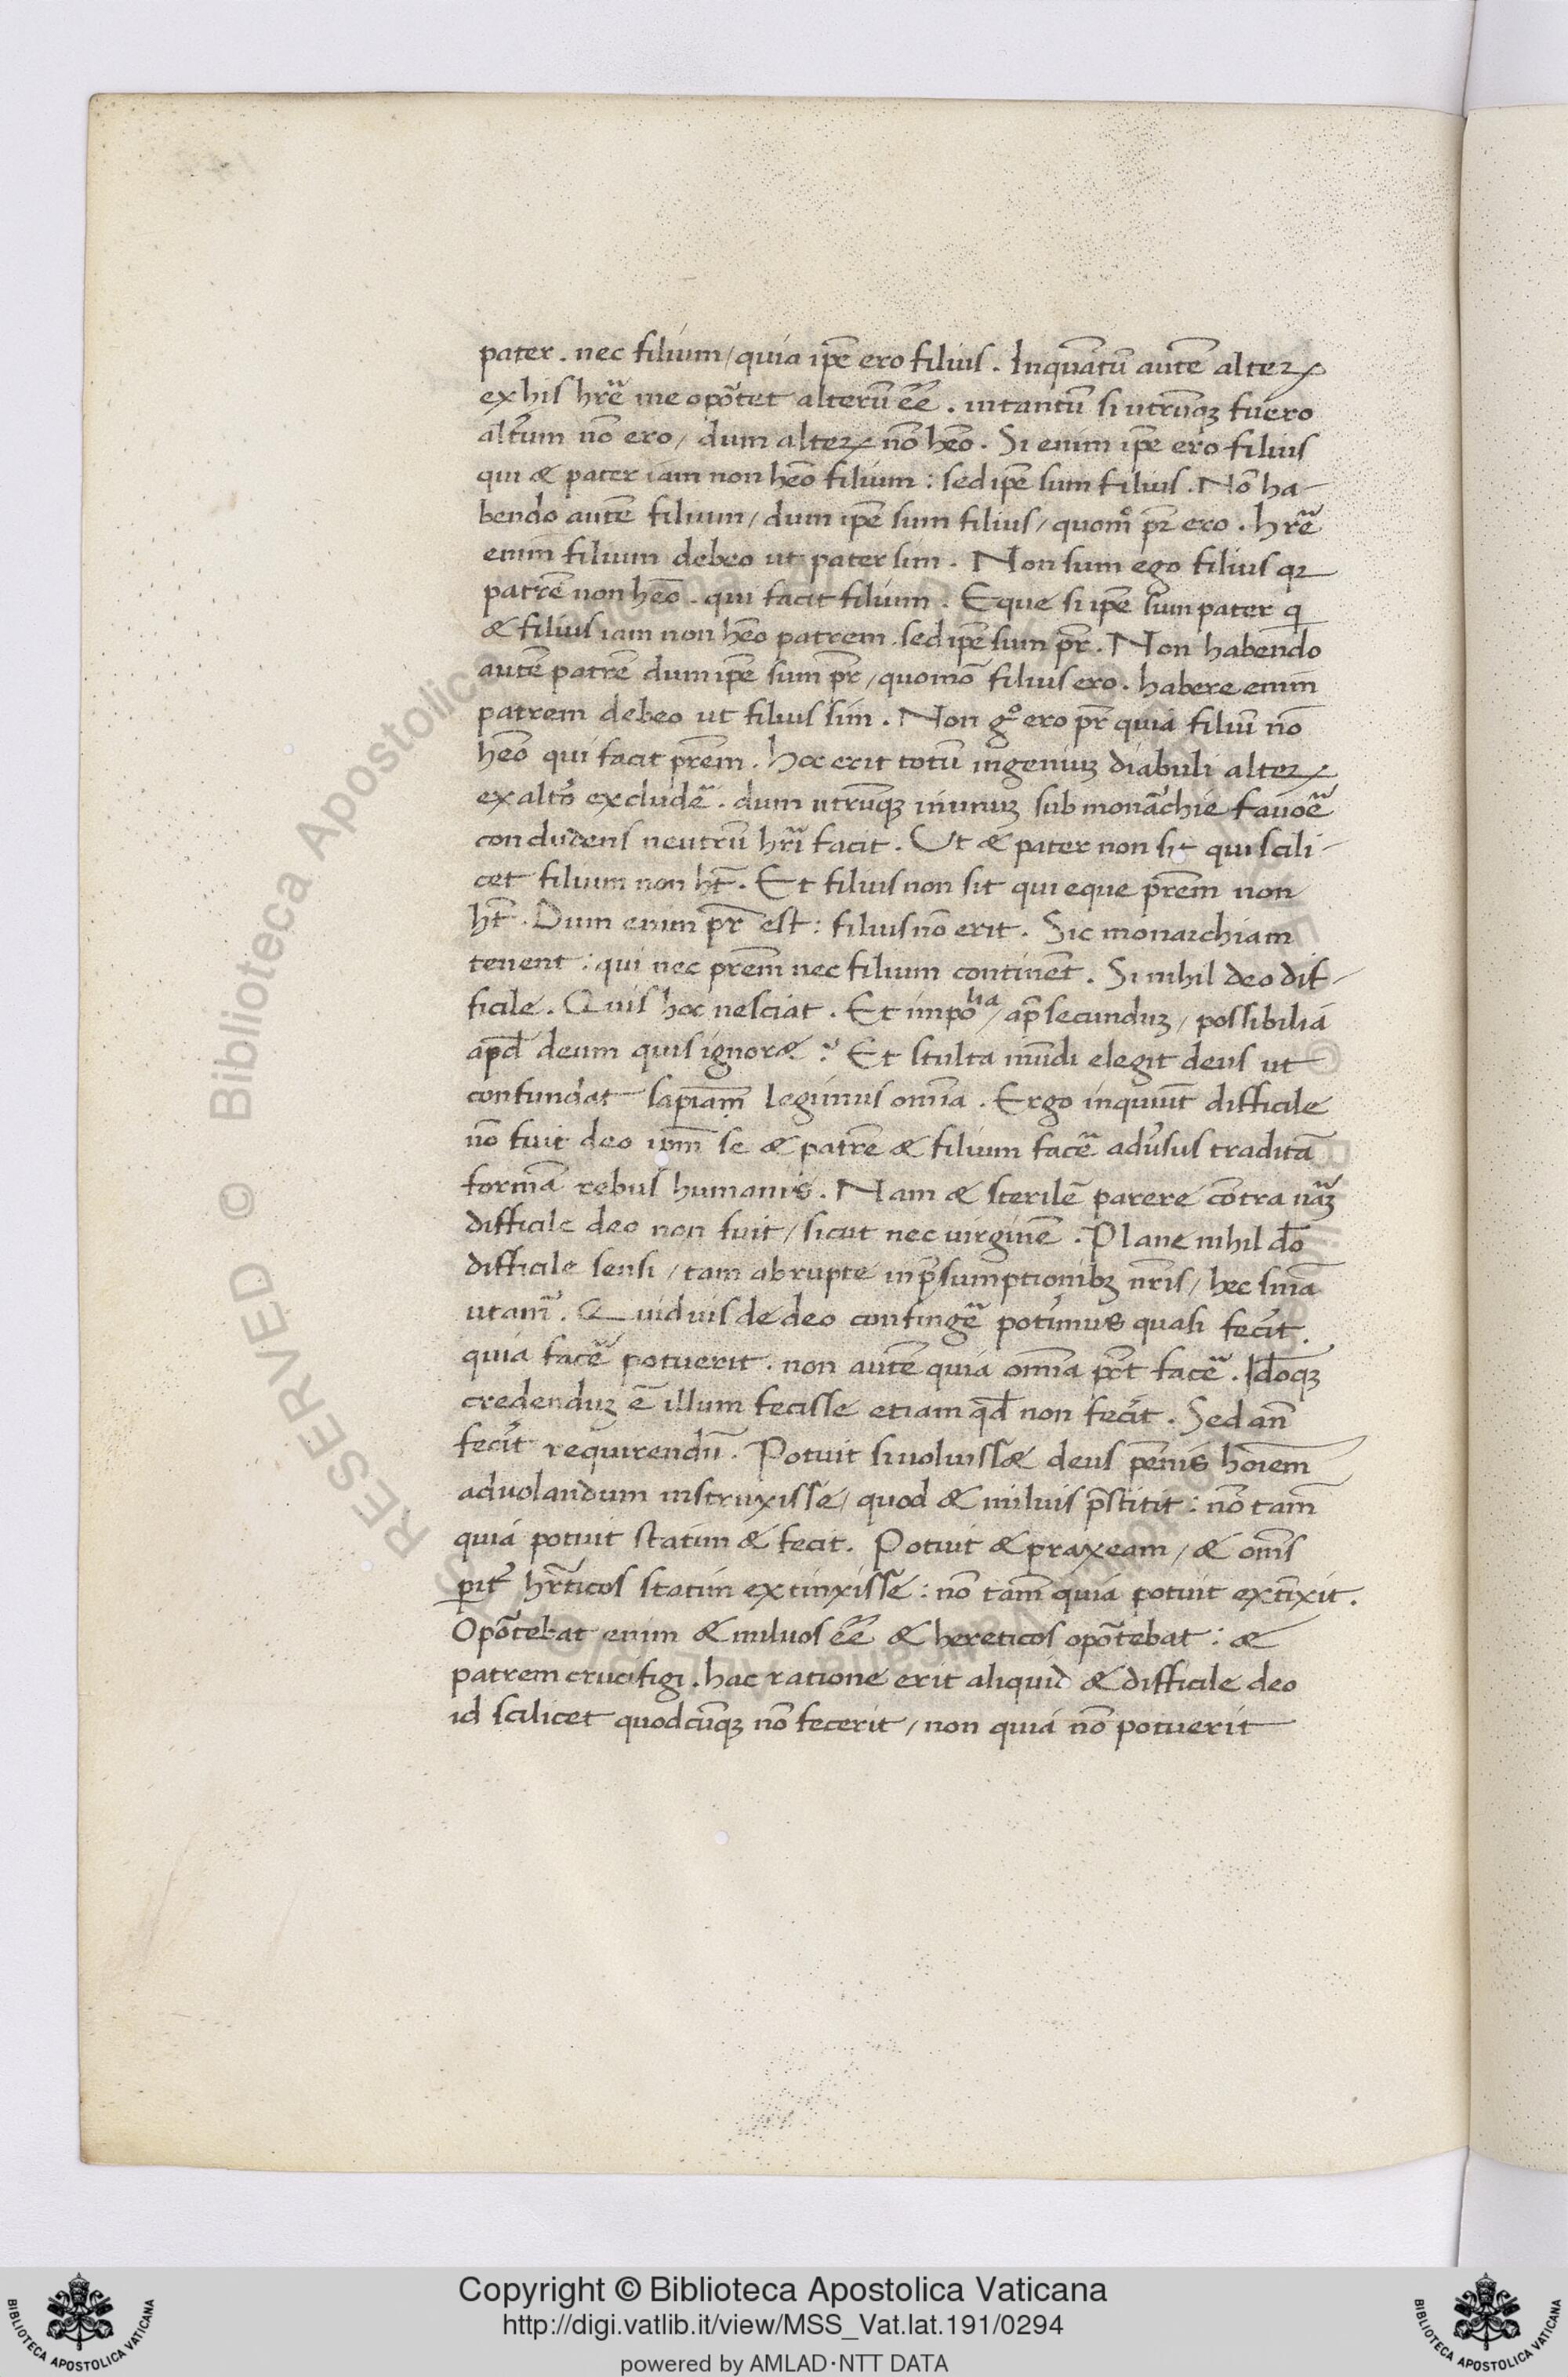 pater. nec filium/quia ip̄e ero filius. Inquātū autē alteꝝ
ex his hr̄e me opōtet alterū ēē. intantū si utrūqꝫ fuero
altum̄ nō ero/ dum alteꝝ nō hēo. Si enim ip̄e ero filius
qui & pater iam non hēo filium: sed ip̄e sum filius. Nō ha-
bendo autē filium/ dum ip̄e sum filius/ quomͦ pr̄ ero. hr̄e
enim filium debeo ut pater sim. Non sum ego filius qꝛ
patrē non hēo. qui facit filium. Eque si ip̄e sum pater q̇
& filius iam non hēo patrem. sed ip̄e sum pr̄. Non habendo
autē patrē dum ip̄e sum pr̄/quomō filius ero. habere enim
patrem debeo ut filius sim. Non gͦ ero pr̄ quia filiū nō
hēo qui facit pr̄em. hoc erit totū ingeniuꝫ diabuli alteꝝ
ex altō excludē. dum utrūqꝫ inunuꝫ sub monāchie favoē
concludens neutrū hr̄i facit. Ut & pater non sit qui scili-
cet filium non ht̄. Et filius non sit qui eque pr̄em non
ht̄. Dum enim pr̄ est: filius nō erit. Sic monarchiam
tenent: qui nec pr̄em nec filium continēt. Si nihil deo dif-
ficile. Quis hoc nesciat. Et impoˡⁱᵃ/ ap̄ secunduꝫ/ possibilia
apd̄ deum quis ignor&? Et stulta mūdi elegit deus ut
confundat sapiam̄ legimus om̄ia. Ergo inquiūt difficile
nō fuit deo ip̄m se & patrē & filium facē adūsus traditā
formā rebus humanis. Nam & sterilē parere cōtra nāꝫ
difficile deo non fuit/ sicut nec virginē. Plane nihil dō
difficile sensi/ tam abrupte in p̄sumptionibꝫ nr̄is/ hec sn̄ia
utam̄. Quiduis de deo confingē potimus quasi fecit̄.
quia facē potuerit. non autē quia om̄ia pr̄t facē. Idōqꝫ
credenduꝫ ē illum fecisse etiam qd̄ non fecit̄. Sed an̄
fecit̄ requirendū. Potuit si voluiss& deus pēnis hoīem
advolandum instruxisse/ quod & miluis p̄stitit: nō tam̄
quia potuit statim & fecit. Potuit & praxeam/ & om̄s
pit̄ hr̄ticos statim extinxisse: nō tam̄ quia potuit extīxit.
Opōtebat enim & miluos ēē & hereticos opōtebat: &
patrem crucifigi. hac ratione erit aliquid & difficile deo
id scilicet quodcūqꝫ nō fecerit/ non quia nō potuerit
Copyright © Biblioteca Apostolica Vaticana
http://digi.vatlib.it/view/MSS_Vat.lat.191/0294
powered by AMLAD·NTT DATA